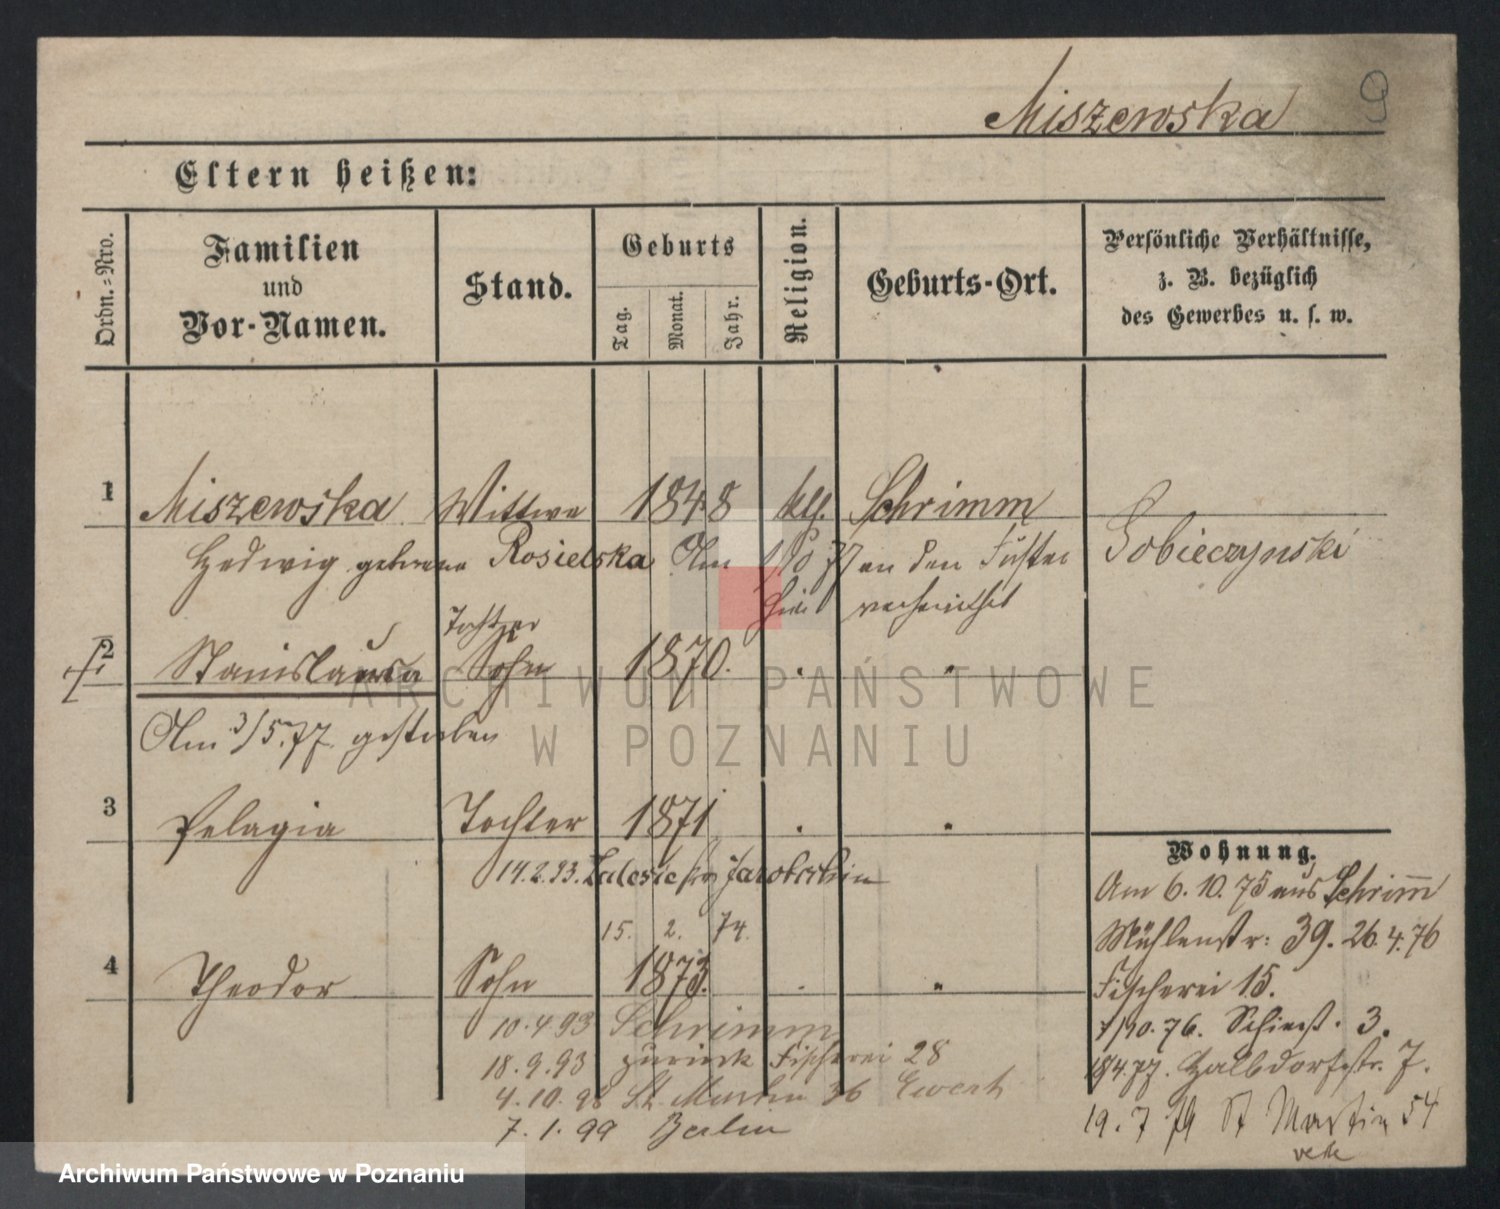 Miszewska 9
Eltern heißen:
Ordn.=Nro. Familien und Vor-Namen. Stand. Geburts Tag. Monat. Jahr. Religion. Geburts-Ort. Persönliche Verhältnisse, z. B. bezüglich des Gewerbes u. s. w.
1 Miszewska Wittwe 1848 kth. Schrimm
Hedwig geborene Rosielska Am 77 an den
verheirathet
Sobieczynski
Tochter
2 Stanislawa Sohn 1870. " "
Am 3/5.77. gestorben
3 Pelagia Tochter 1871 " "
14.2.93.
15. 2. 74.
4 Theodor Sohn 1873. " "
10.4.93 Schrimm
18.9.93 zurück Fischerei 28
4.10.98 St. Martin 36 Ewert
7.1.99 Berlin
Wohnung.
Am 6.10.75 aus Schrimm
Mühlenstr: 39. 26.4.76
Fischerei 15.
3.
Halbdorfstr. 7.
19.7.79 St Martin 54
ARCHIWUM PAŃSTWOWE
W POZNANIU
Archiwum Państwowe w Poznaniu